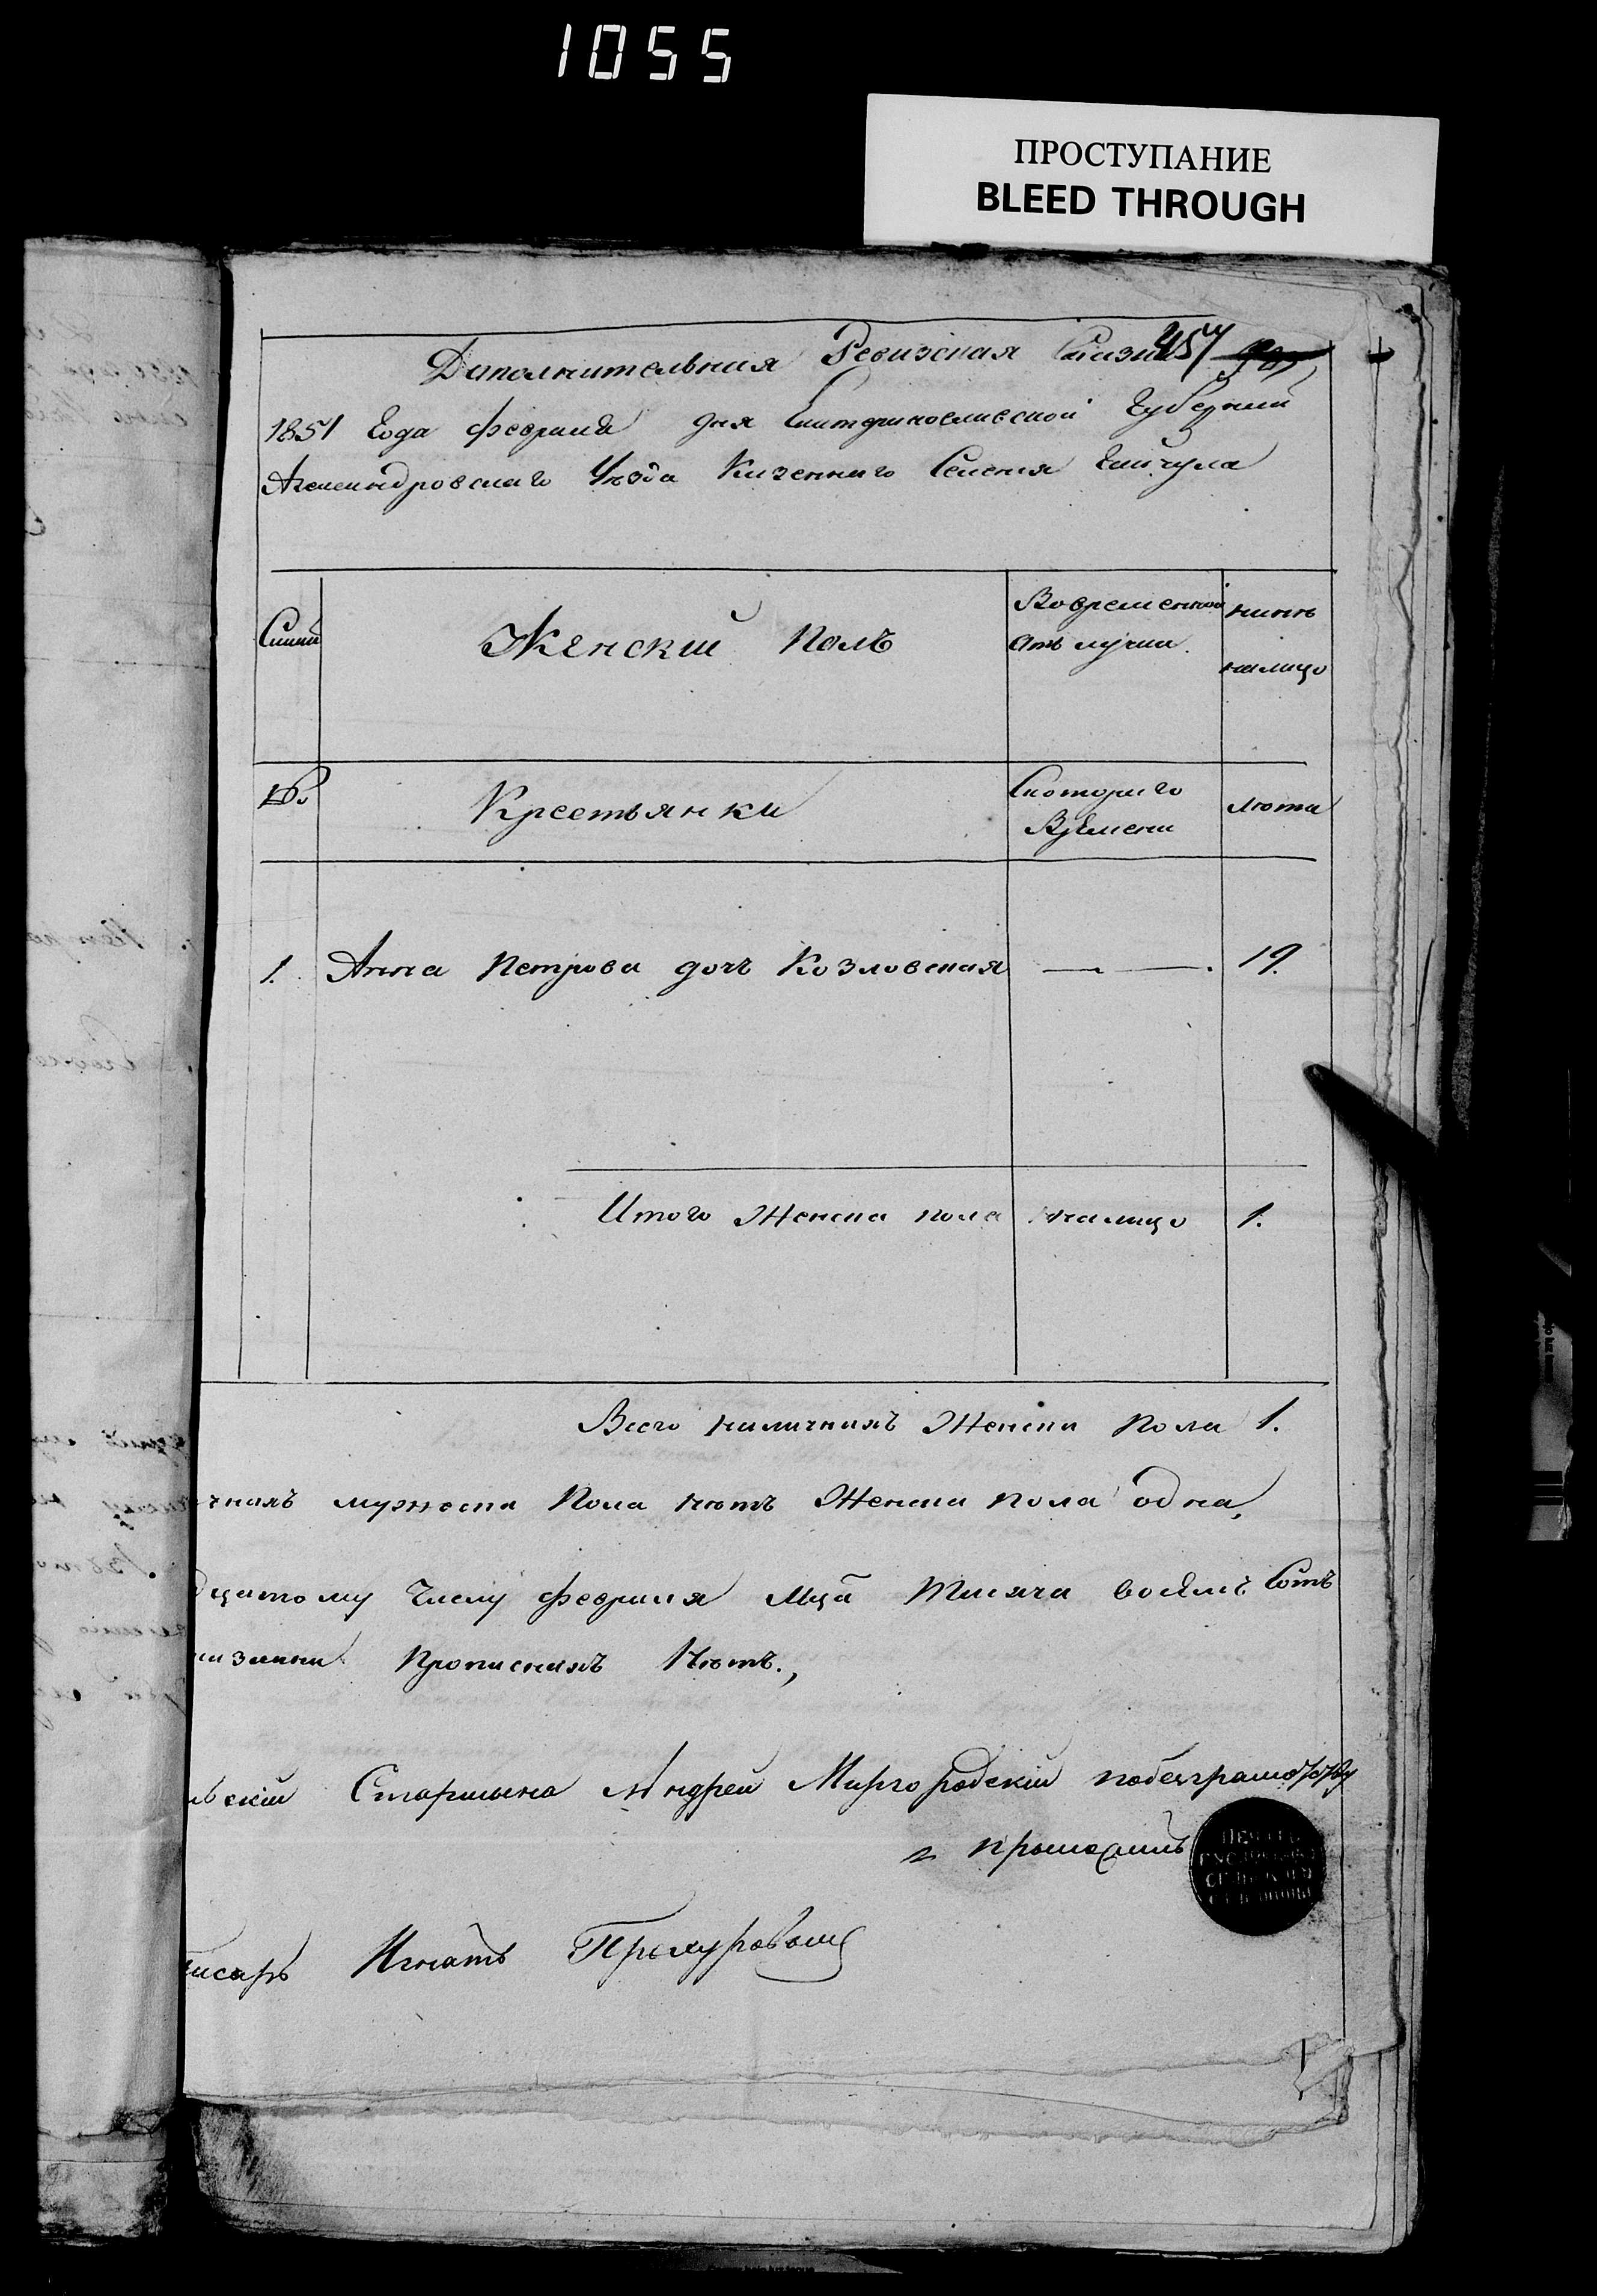 1055
ПРОСТУПАНИЕ
BLEED THROUGH
Дополнительная Ревизская Сказка 457
1851 Года февраля дня Екатеринославской Губерний
Александровскаго Уѣзда Казеннаго Селения Гайчула
Семьи
Женский Полъ
Во временной
отлучки
нынѣ
налицо
№
Крестьянки
Скотораго
Времени
лѣта
1. Анна Петрова дочъ Козловская — — 19.
Итого Женска пола налицо 1.
Всего наличныхъ Женска Пола 1.
чныхъ мужеска Пола нѣтъ Женска пола одна,
дцатому Числу февраля мца Тысяча восемъ Сотъ
Прописныхъ Нѣтъ.,
ьский Старшына Андрей Миргородский побезграмотству
прыложилъ
ПЕЧАТЬ
писаръ Игнатъ